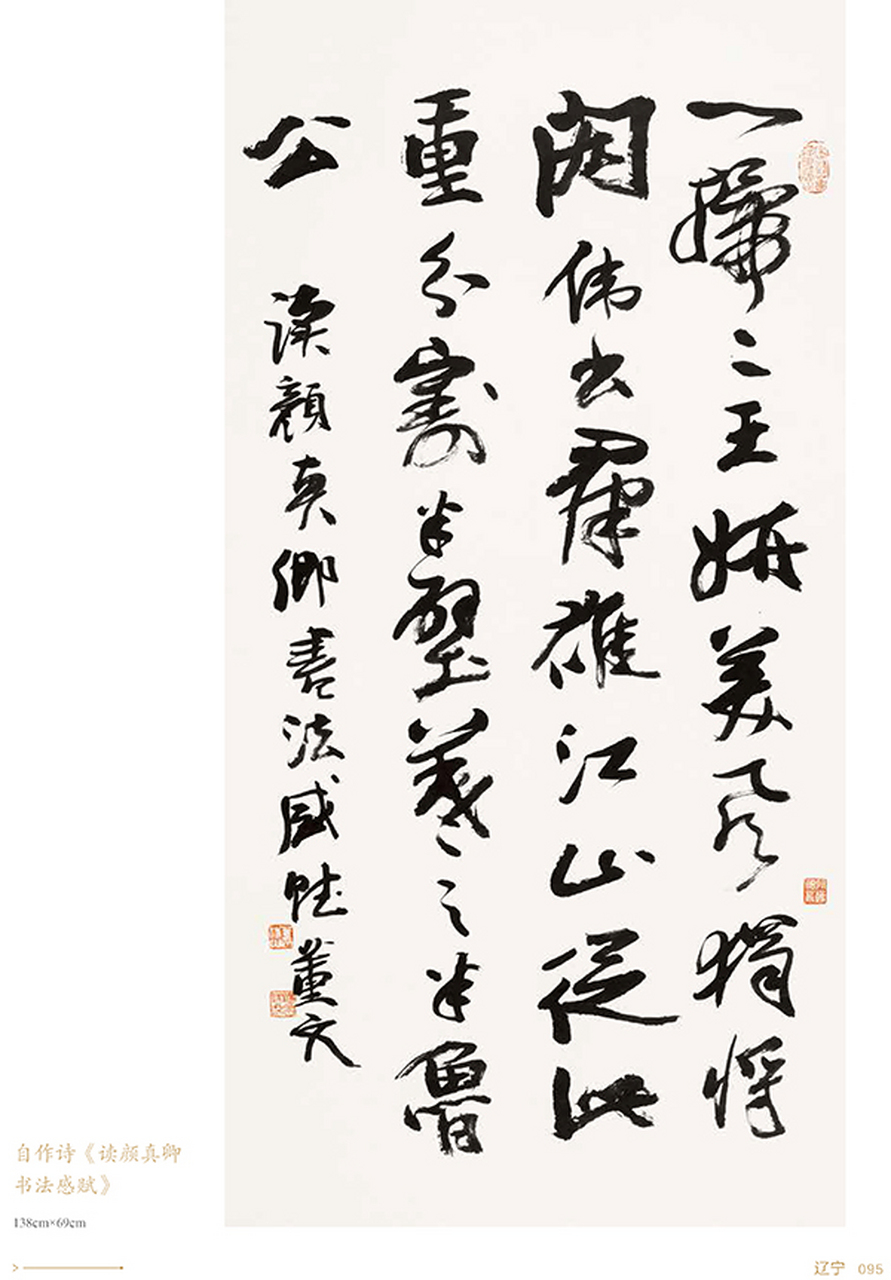 一掃二王妍美风獨将
闳伟出群雄江山從此
重分割半壁羲之半魯
公 读顏真卿書法感赋 董文
自作诗《读颜真卿
书法感赋》
138cm×69cm
辽宁 095